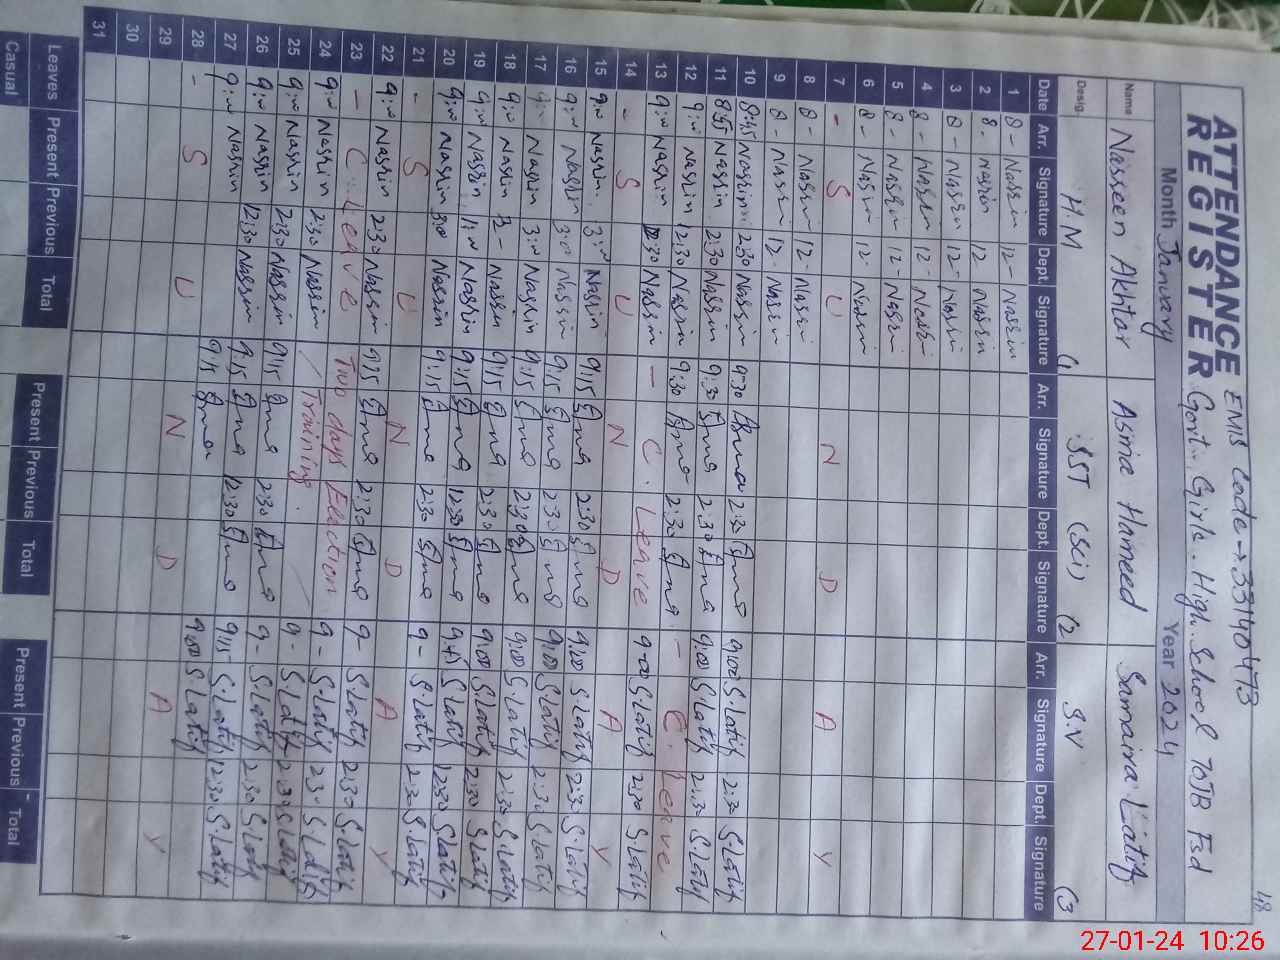 48
ATTENDANCE REGISTER
EMIS Code → 33140473
Govt. Girls. High. School 70JB Fsd
Month January Year 2024
Name Nasseen Akhtar Asma Hameed Samaira Latif
Desig. H.M (1 SST (Sci) (2 S.V (3
Date Arr. Signature Dept. Signature Arr. Signature Dept. Signature Arr. Signature Dept. Signature
1 8- Nasrin 12- Nasrin
2 8- Nasrin 12 Nasrin
3 8- Nasrin 12- Nasrin
4 8- Nasrin 12- Nasrin
5 8- Nasrin 12- Nasrin
6 8- Nasrin 12- Nasrin
7 - S U N D A Y
8 8- Nasrin 12- Nasrin
9 8- Nasrin 12- Nasrin
10 8:45 Nasrin 2:30 Nasrin 9-30 Asma 2:30 Asma 9:00 S.Latif 2:30 S.Latif
11 8:45 Nasrin 2:30 Nasrin 9:30 Asma 2:30 Asma 9:00 S.Latif 2:30 S.Latif
12 9:00 Nasrin 12:30 Nasrin 9:30 Asma 2:30 Asma - C. Leave
13 9:00 Nasrin 12:30 Nasrin - C. Leave 9:00 S.Latif 2:30 S.Latif
14 - S U N D A Y
15 9:00 Nasrin 3:00 Nasrin 9:15 Asma 2:30 Asma 9:00 S.Latif 2:30 S.Latif
16 9:00 Nasrin 3:00 Nasrin 9:15 Asma 2:30 Asma 9:00 S.Latif 2:30 S.Latif
17 9:00 Nasrin 3:00 Nasrin 9:15 Asma 2:30 Asma 9:00 S.Latif 2:30 S.Latif
18 9:00 Nasrin 3- Nasrin 9:15 Asma 2:30 Asma 9:00 S.Latif 2:30 S.Latif
19 9:00 Nasrin 1:00 Nasrin 9:15 Asma 12:30 Asma 9:45 S.Latif 12:30 S.Latif
20 9:00 Nasrin 3:00 Nasrin 9:15 Asma 2:30 Asma 9- S.Latif 2:30 S.Latif
21 - S U N D A Y
22 9:00 Nasrin 2:30 Nasrin 9:15 Asma 2:30 Asma 9- S.Latif 2:30 S.Latif
23 - C. Leave Two days Election 9- S.Latif 2:30 S.Latif
24 9:00 Nasrin 2:30 Nasrin / Training. 9- S.Latif 2:30 S.Latif
25 9:00 Nasrin 2:30 Nasrin 9:15 Asma 2:30 Asma 9- S.Latif 2:30 S.Latif
26 9:00 Nasrin 12:30 Nasrin 9:15 Asma 12:30 Asma 9:15- S.Latif 12:30 S.Latif
27 9:00 Nasrin 9:15 Asma 9:00 S.Latif
28 - S U N D A Y
29
30
31
Leaves Present Previous Total Present Previous Total Present Previous Total
Casual
27-01-24 10:26